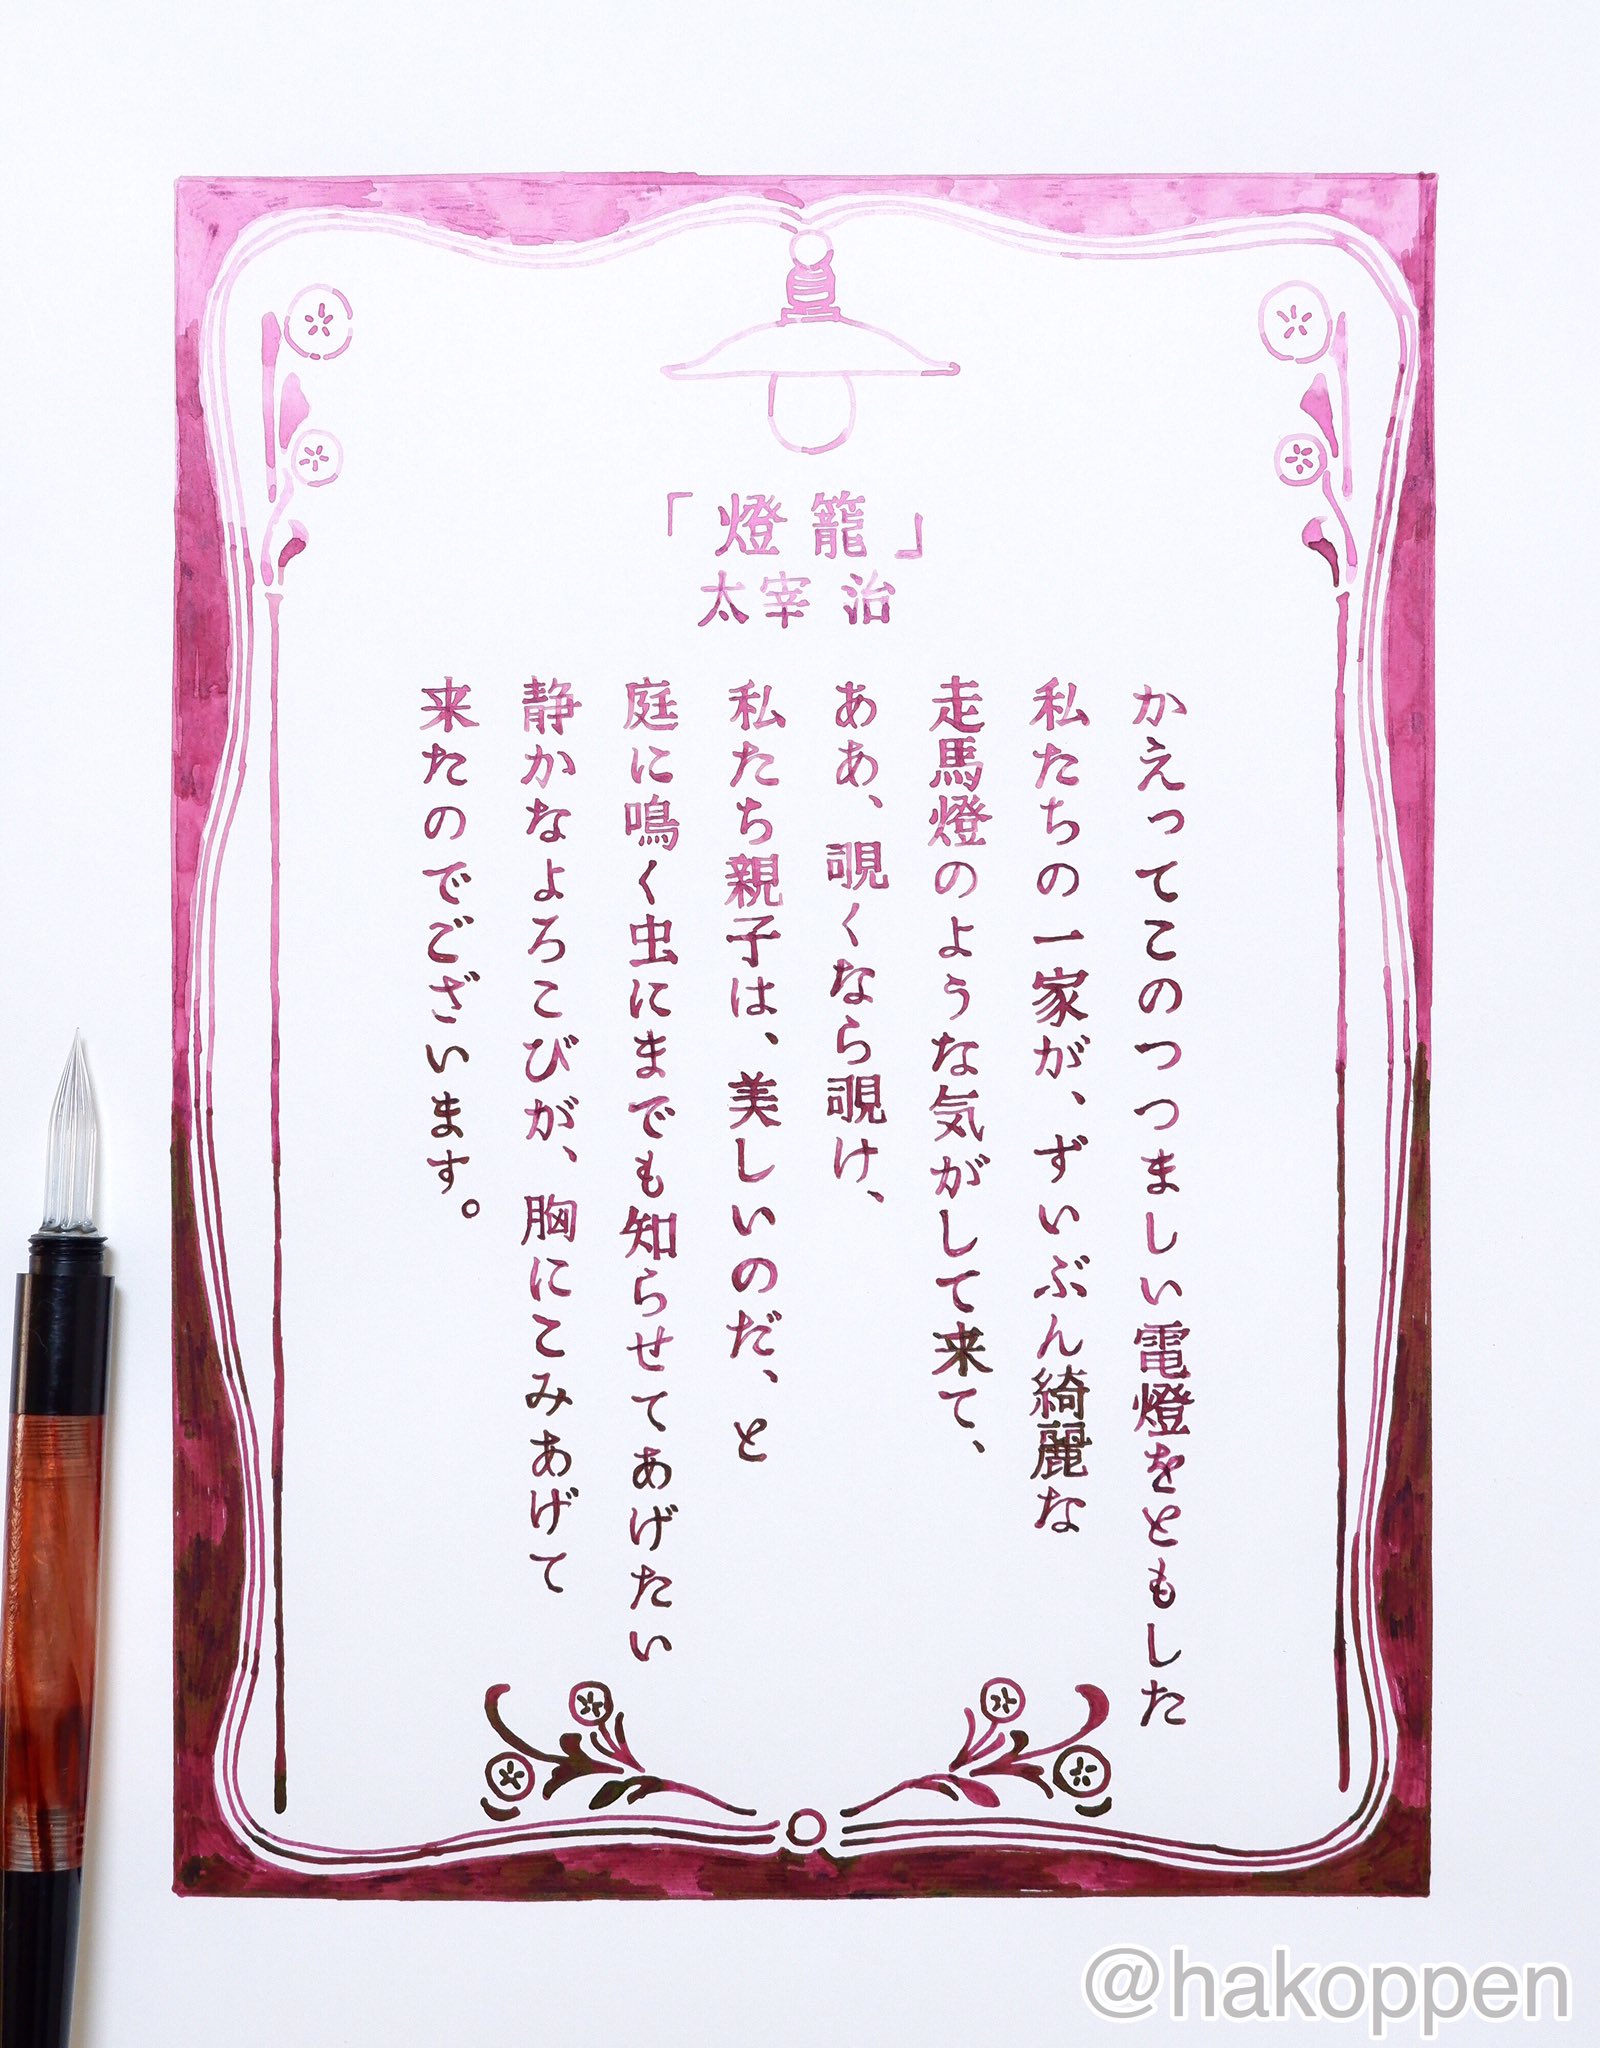 「燈籠」
太宰 治
かえってこのつつましい電燈をともした
私たちの一家が、ずいぶん綺麗な
走馬燈のような気がして来て、
ああ、覗くなら覗け、
私たち親子は、美しいのだ、と
庭に鳴く虫にまでも知らせてあげたい
静かなよろこびが、胸にこみあげて
来たのでございます。
@hakoppen